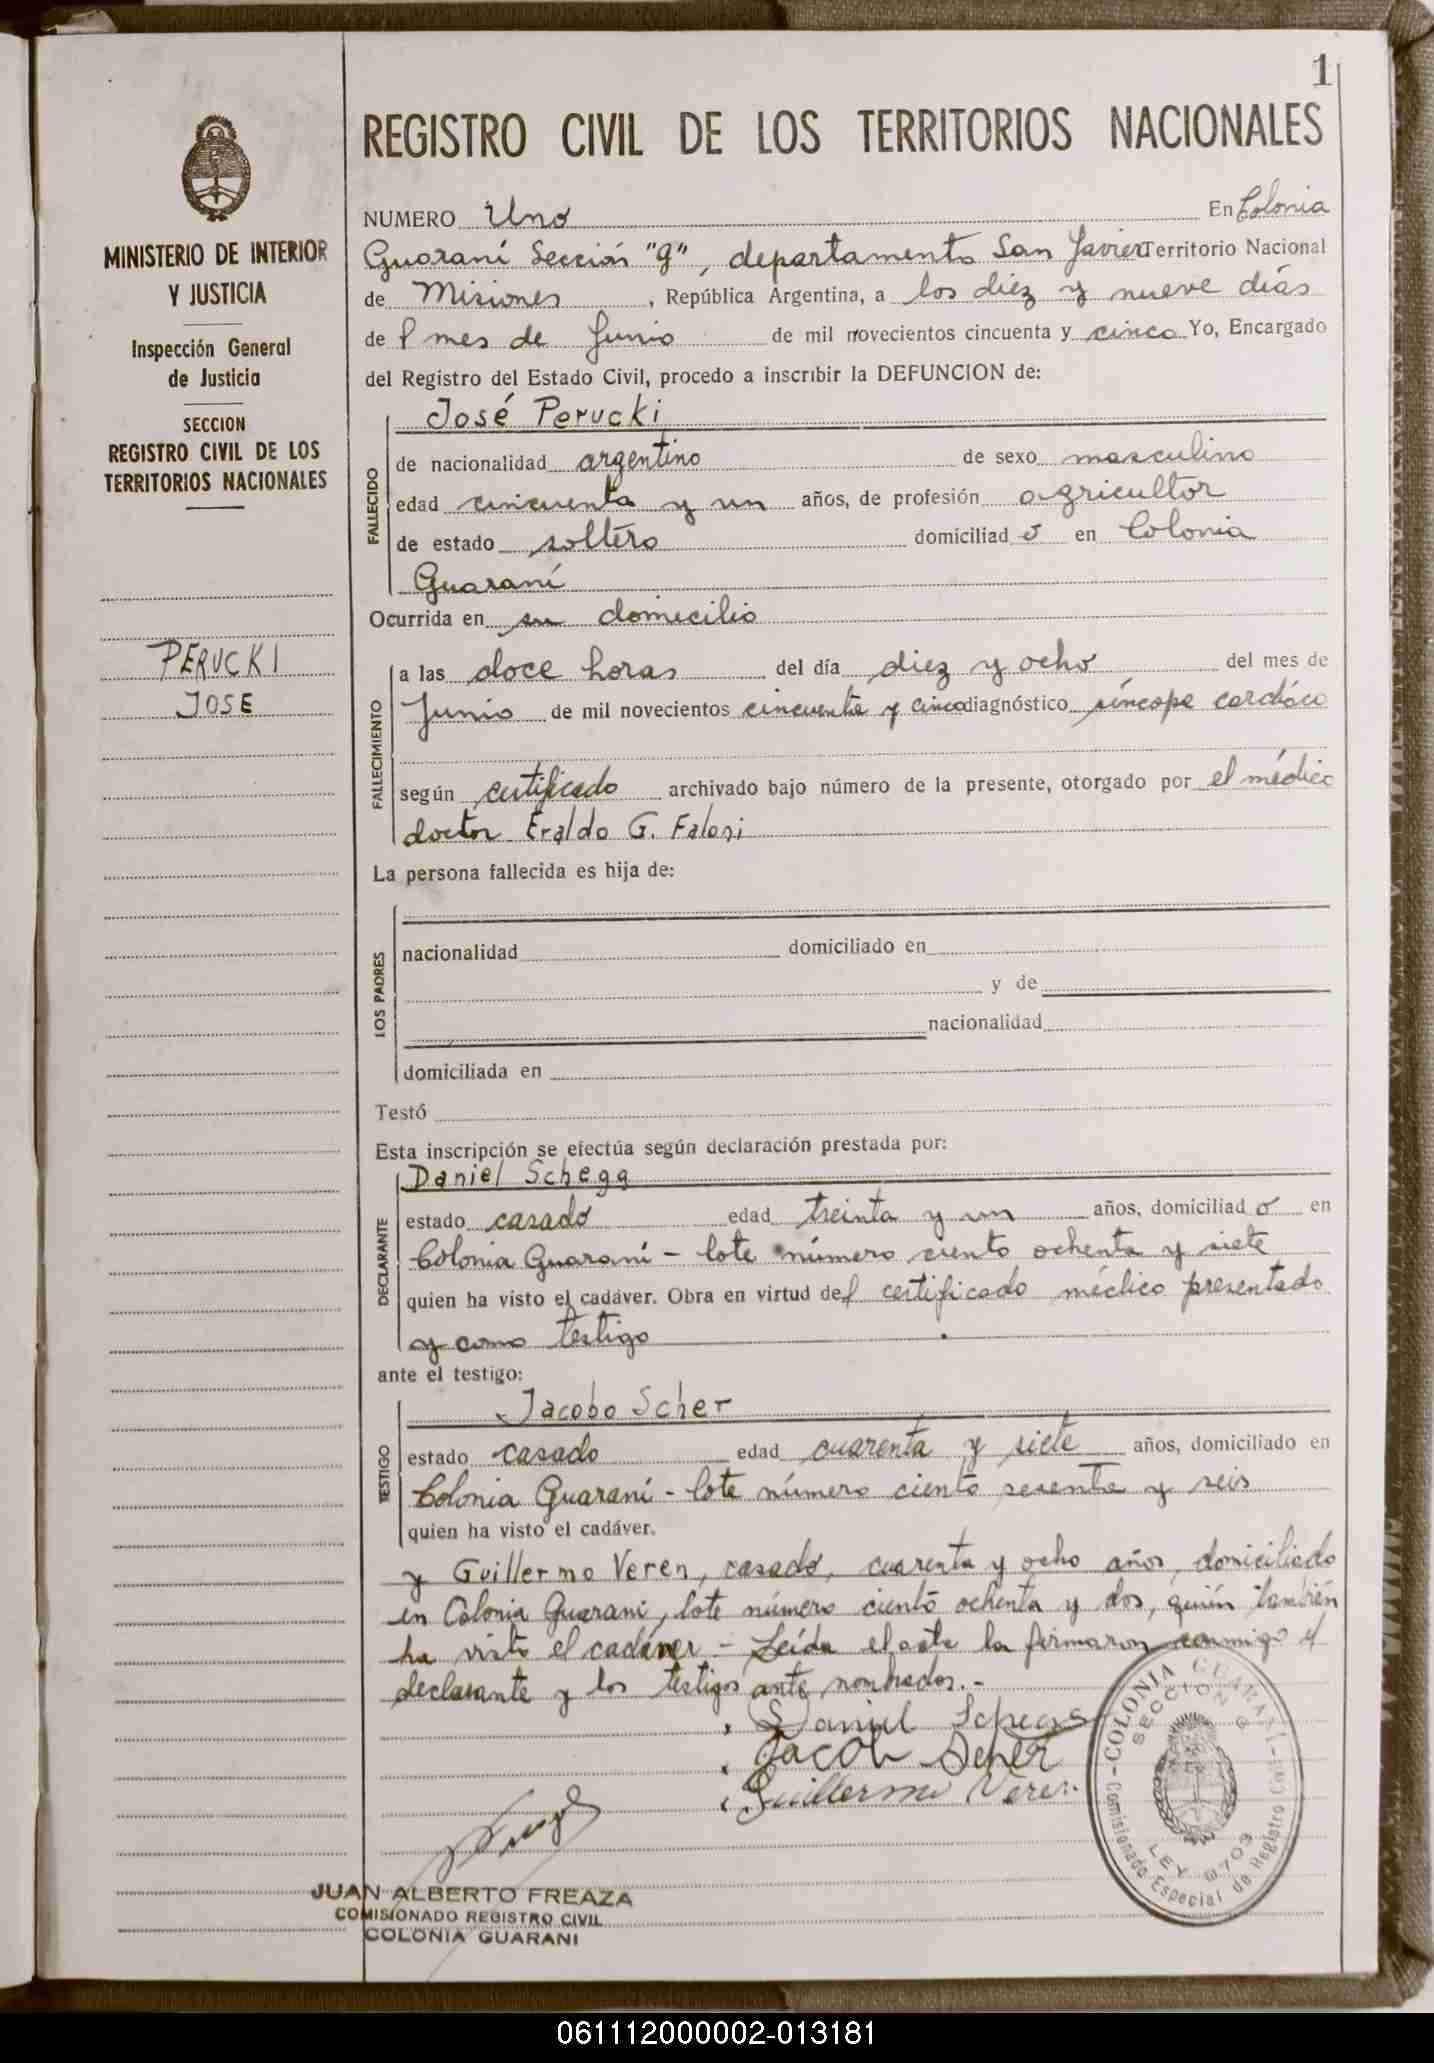 1
REGISTRO CIVIL DE LOS TERRITORIOS NACIONALES
MINISTERIO DE INTERIOR
Y JUSTICIA
Inspección General
de Justicia
SECCION
REGISTRO CIVIL DE LOS
TERRITORIOS NACIONALES
PERUCKI
JOSE
NUMERO Uno En Colonia
Guaraní Sección "9", departamento San Javier Territorio Nacional
de Misiones, República Argentina, a los diez y nueve días
del mes de Junio de mil novecientos cincuenta y cinco Yo, Encargado
del Registro del Estado Civil, procedo a inscribir la DEFUNCION de:
José Perucki
FALLECIDO
de nacionalidad argentino de sexo masculino
edad cincuenta y un años, de profesión agricultor
de estado soltero domiciliado en Colonia
Guaraní
Ocurrida en su domicilio
FALLECIMIENTO
a las doce horas del día diez y ocho del mes de
Junio de mil novecientos cincuenta y cinco diagnóstico síncope cardíaco
según certificado archivado bajo número de la presente, otorgado por el médico
doctor Eraldo G. Faloni
La persona fallecida es hija de:
LOS PADRES
nacionalidad domiciliado en
y de
nacionalidad
domiciliada en
Testó
Esta inscripción se efectúa según declaración prestada por:
DECLARANTE
Daniel Schegg
estado casado edad treinta y un años, domiciliado en
Colonia Guaraní - lote número ciento ochenta y siete
quien ha visto el cadáver. Obra en virtud del certificado médico presentado
y como testigo
ante el testigo:
TESTIGO
Jacobo Scher
estado casado edad cuarenta y siete años, domiciliado en
Colonia Guaraní - lote número ciento sesenta y seis
quien ha visto el cadáver.
y Guillermo Veren, casado, cuarenta y ocho años, domiciliado
en Colonia Guaraní, lote número ciento ochenta y dos, quién también
ha visto el cadáver - Leída el acta la firmaron conmigo el
declarante y los testigos ante nombrados.-
Daniel Schegg
Jacob Scher
Guillermo Veren
COLONIA GUARANI
SECCION 9
LEY 3703
Comisionado Especial de Registro Civil
JUAN ALBERTO FREAZA
COMISIONADO REGISTRO CIVIL
COLONIA GUARANI
061112000002-013181